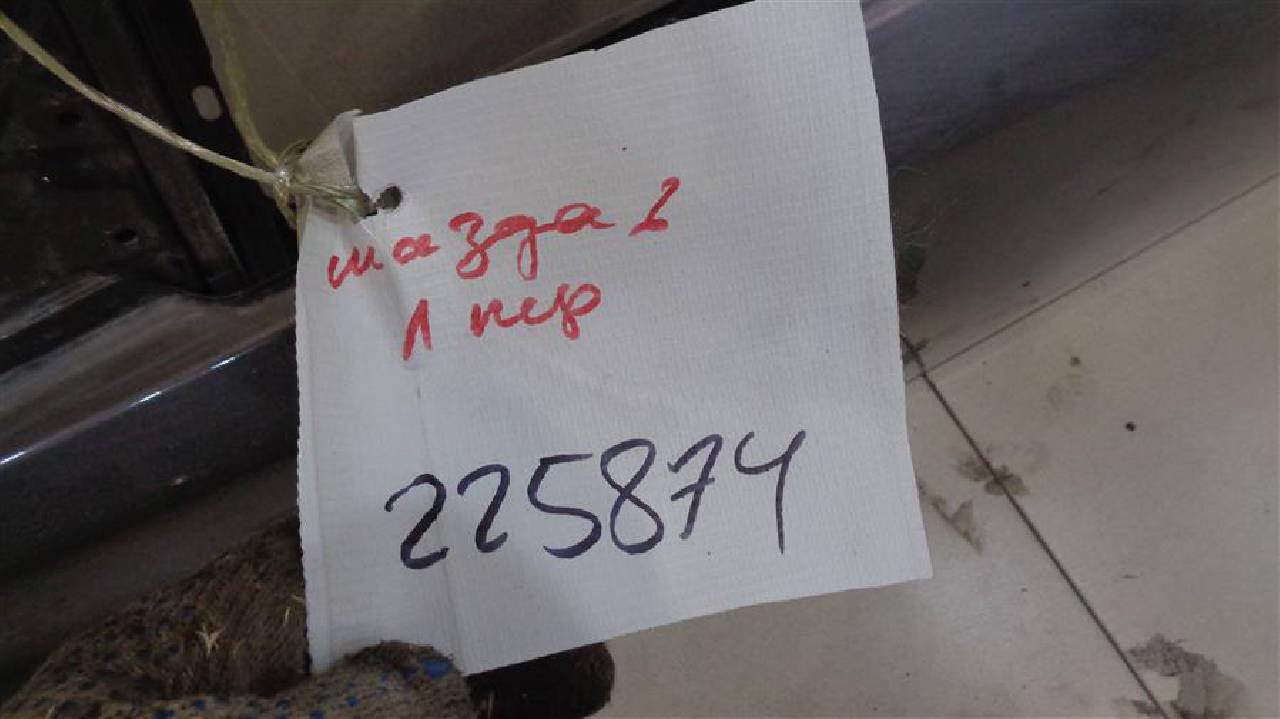 мазда 6
Л пер
225874